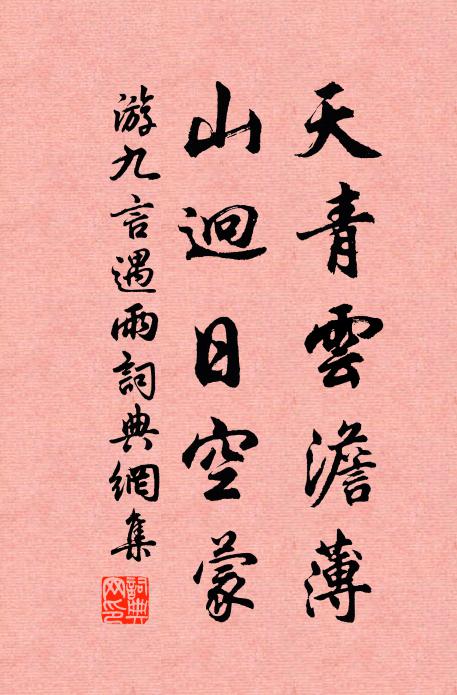 天青雲澹薄
山迥日空蒙
游九言遇雨詞典網集
詞典網印